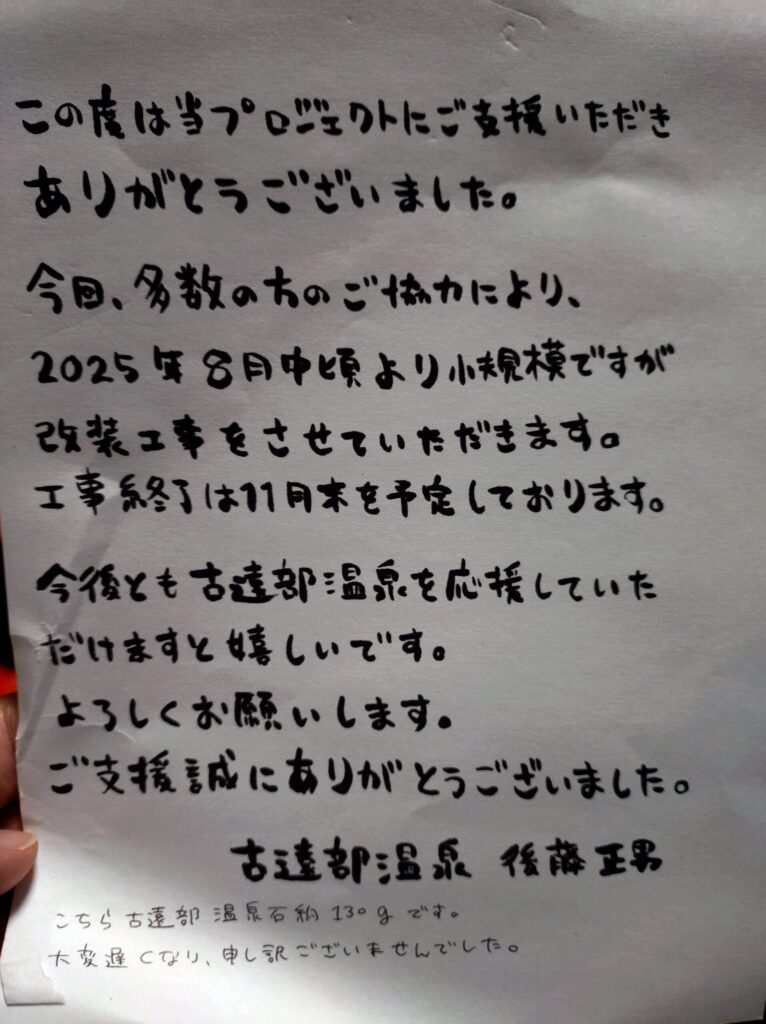 この度は当プロジェクトにご支援いただき
ありがとうございました。
今回、多数の方のご協力により、
2025年8月中頃より小規模ですが
改装工事をさせていただきます。
工事終了は11月末を予定しております。
今後とも古遠部温泉を応援していた
だけますと嬉しいです。
よろしくお願いします。
ご支援誠にありがとうございました。
古遠部温泉 後藤正男
こちら古遠部温泉石約130gです。
大変遅くなり、申し訳ございませんでした。